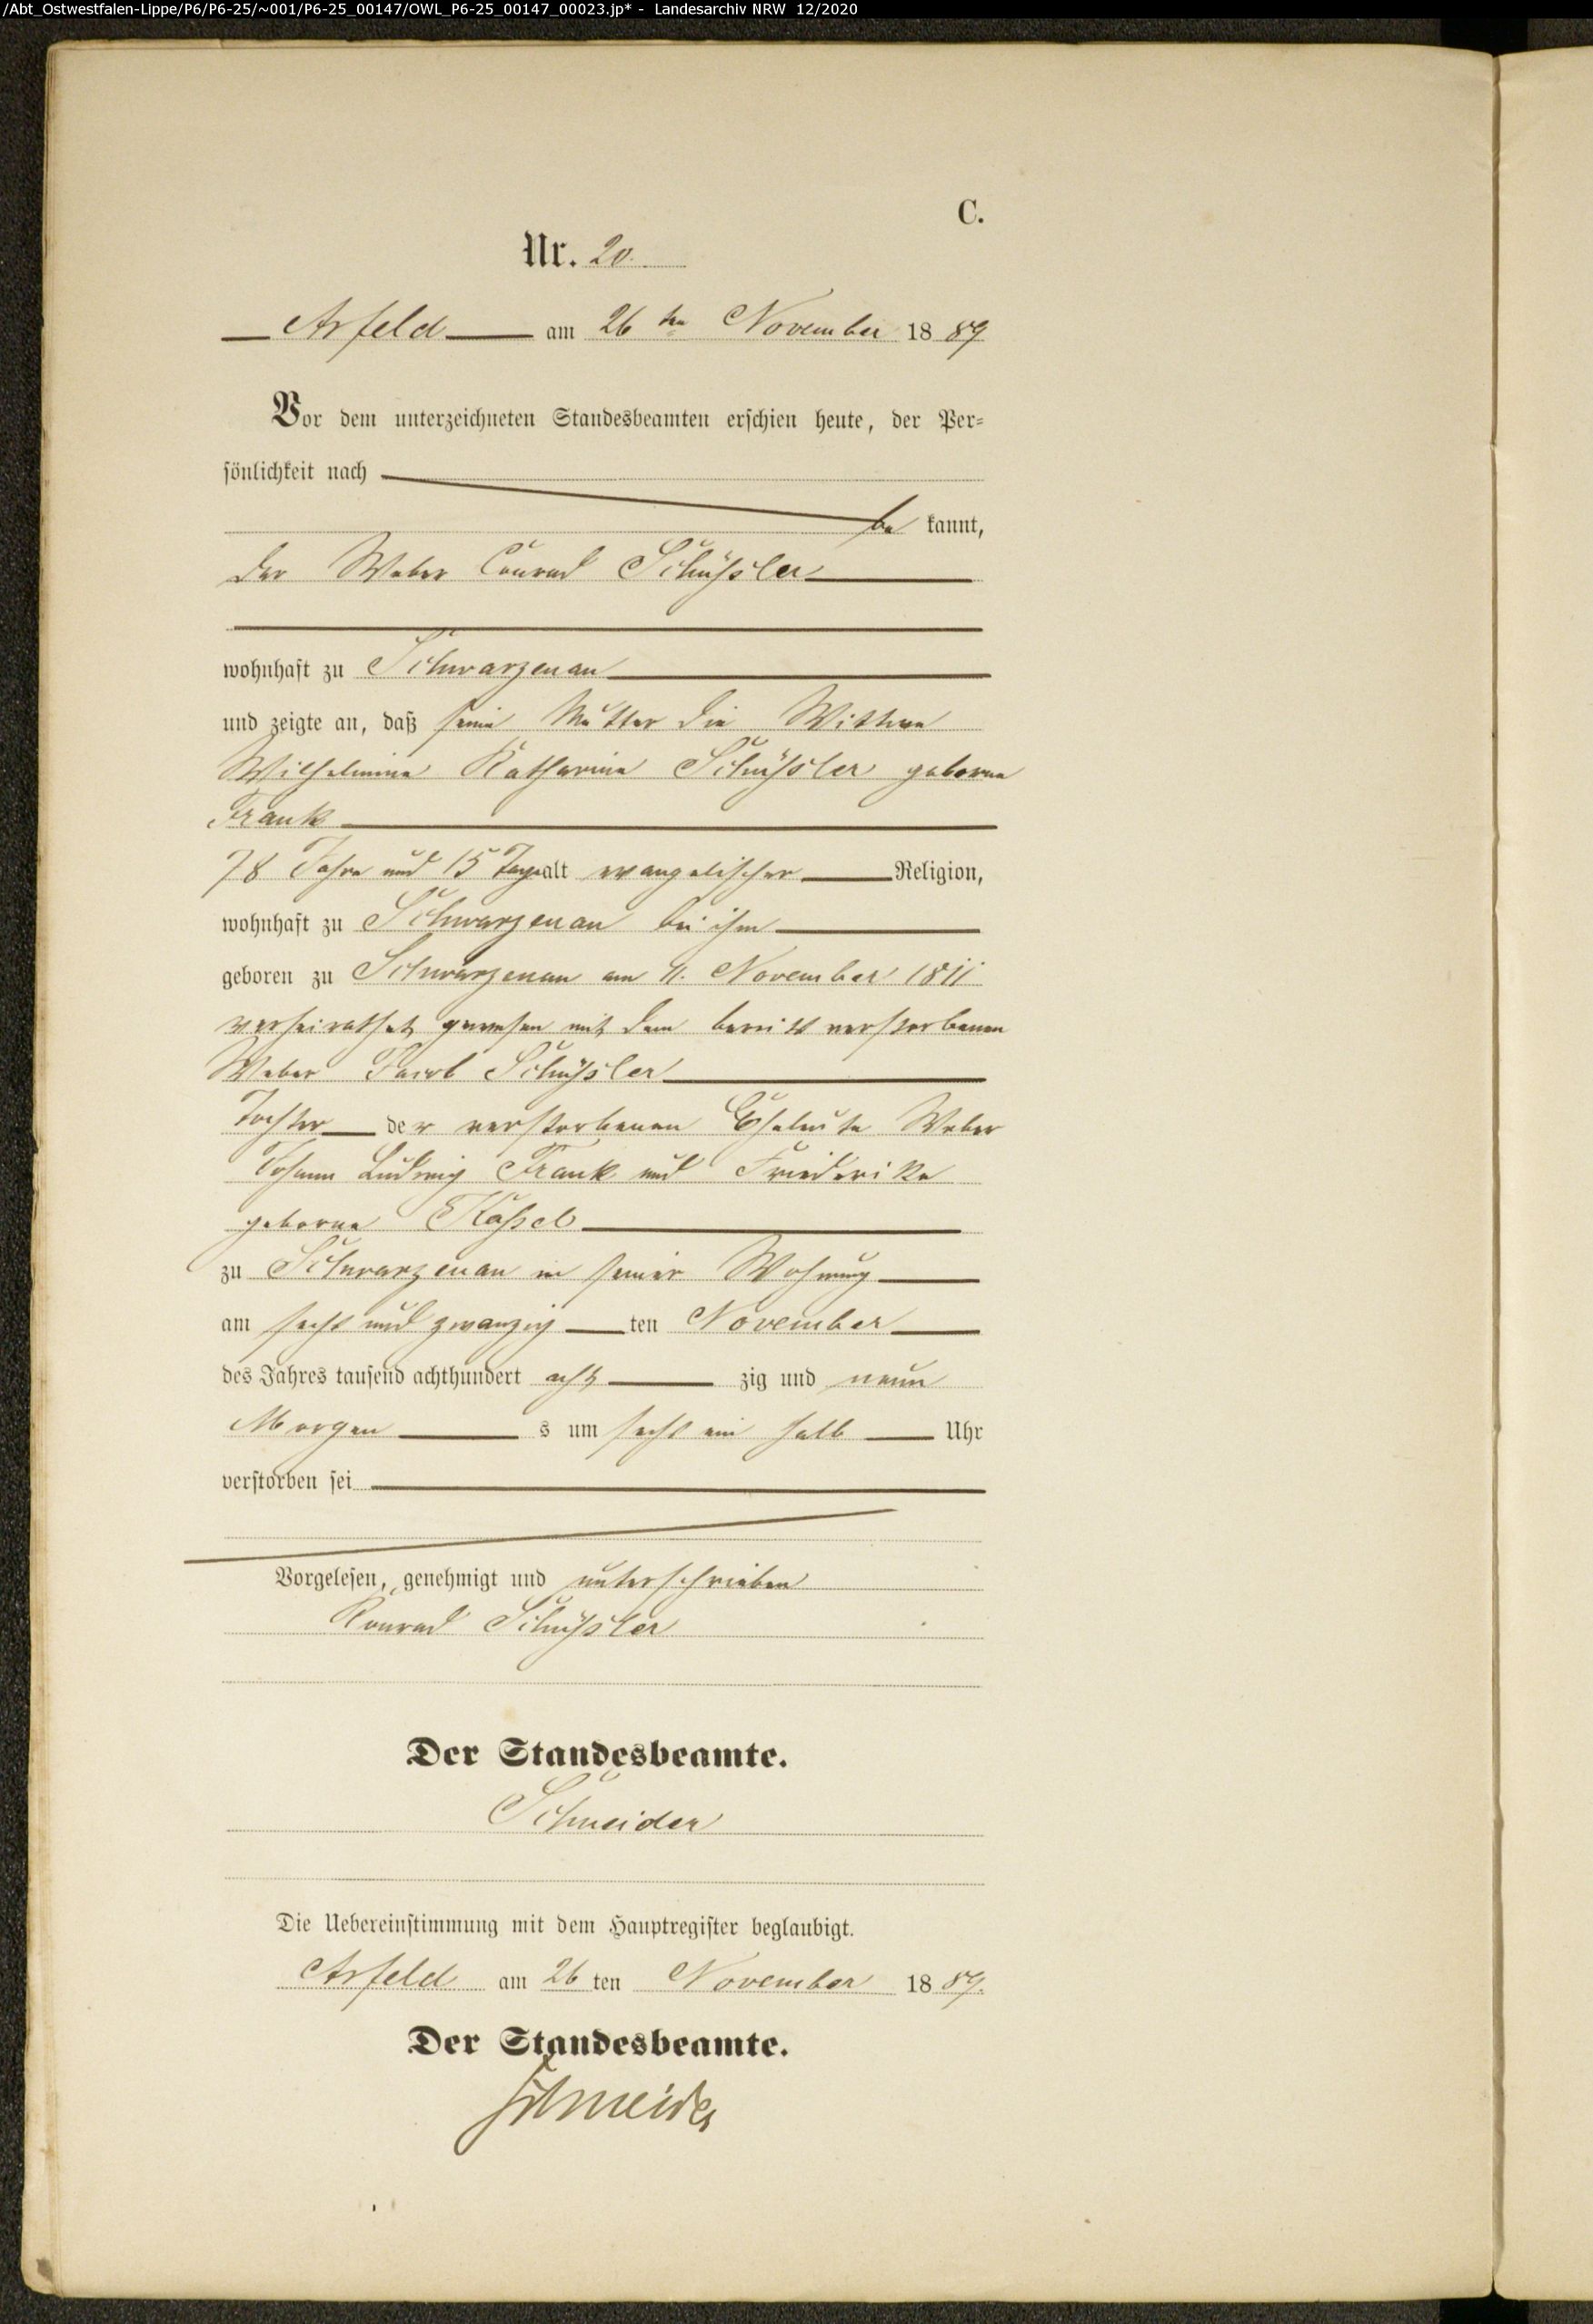 /Abt_Ostwestfalen-Lippe/P6/P6-25/~001/P6-25_00147/OWL_P6-25_00147_00023.jp* - Landesarchiv NRW 12/2020
C.
Nr. 20.
Arfeld am 26 ten November 1889
Vor dem unterzeichneten Standesbeamten erschien heute, der Per-
sönlichkeit nach
be kannt,
der Weber Conrad Schüssler
wohnhaft zu Schwarzenau
und zeigte an, daß seine Mutter die Wittwe
Wilhelmine Katharina Schüssler geborne
Frank
78 Jahre und 15 Tage alt evangelischer Religion,
wohnhaft zu Schwarzenau bei ihm
geboren zu Schwarzenau am 11. November 1811
verheirathet gewesen mit dem bereits verstorbenen
Weber Jacob Schüssler
Tochter der verstorbenen Eheleute Weber
Johann Ludwig Frank und Friederike
geborne Kassel
zu Schwarzenau in seiner Wohnung
am sechs und zwanzig ten November
des Jahres tausend achthundert acht zig und neun
Morgen s um sechs ein halb Uhr
verstorben sei
Vorgelesen, genehmigt und unterschrieben
Konrad Schüssler
Der Standesbeamte.
Schneider
Die Uebereinstimmung mit dem Hauptregister beglaubigt.
Arfeld am 26 ten November 1889.
Der Standesbeamte.
Schneider